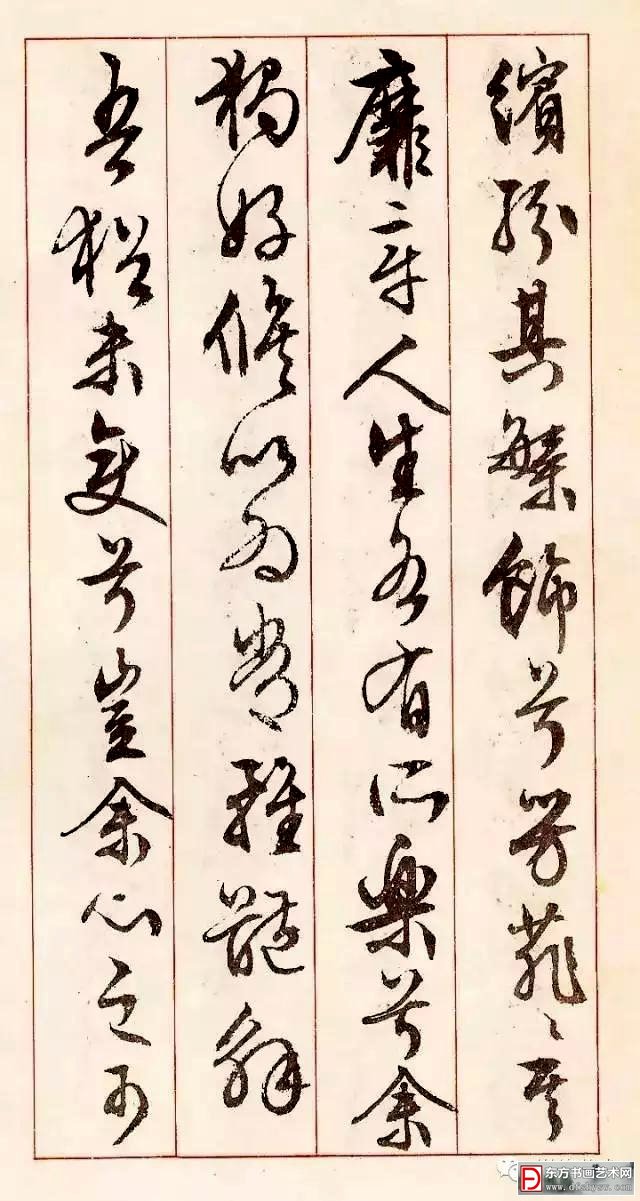 繽紛其繁飾兮芳菲〻其
靡章人生各有所樂兮余
獨好脩以為常雖體解
吾猶未變兮豈余心之可
东方书画艺术网